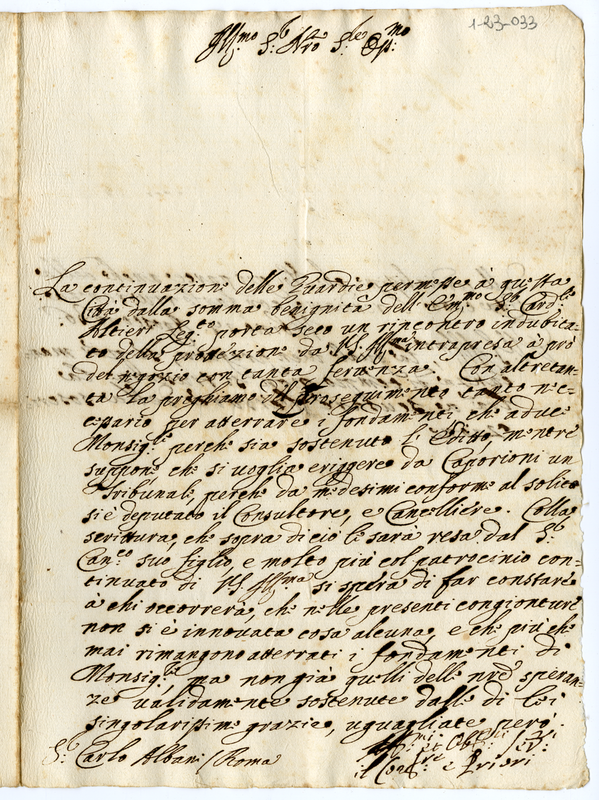 1-23-033
Ill.mo S.r N.ro S.re Oss.mo
La continuazione delle Guardie permesse à questa
Città dalla somma benignità dell' Em.mo S.r Card.le
Altieri Leg.to porta seco un rincontro indubita-
to della protezione da VS Ill.ma intrapresa à prò
del negozio con tanta fervenza. Con altretan-
ta la preghiamo del proseguimento tanto ne-
cessario per atterrare i fondamenti che aduce
Monsig.re perche sia sostenuto l'Editto, mentre
suppone che si voglia eriggere da Caporioni un
Tribunale, perche da medesimi conforme al solito
si è deputato il Consultore, e Cancelliere. Colla
scrittura, che sopra di ciò le sarà resa dal S.r
Can.co suo figlio, e molto più col patrocinio con-
tinuato di VS Ill.ma si spera di far constare
à chi occorrerà, che nelle presenti congionture
non si è innovata cosa alcuna, e che più che
mai rimangono atterrati i fondamenti di
Monsig.re ma non già quelli delle nre speran-
ze validamente sostenute dalle di lei
singolarissime grazie, uguagliate però.
S.r Carlo Albani / Roma
mi et Obb Ser
il Conf.re e Priori